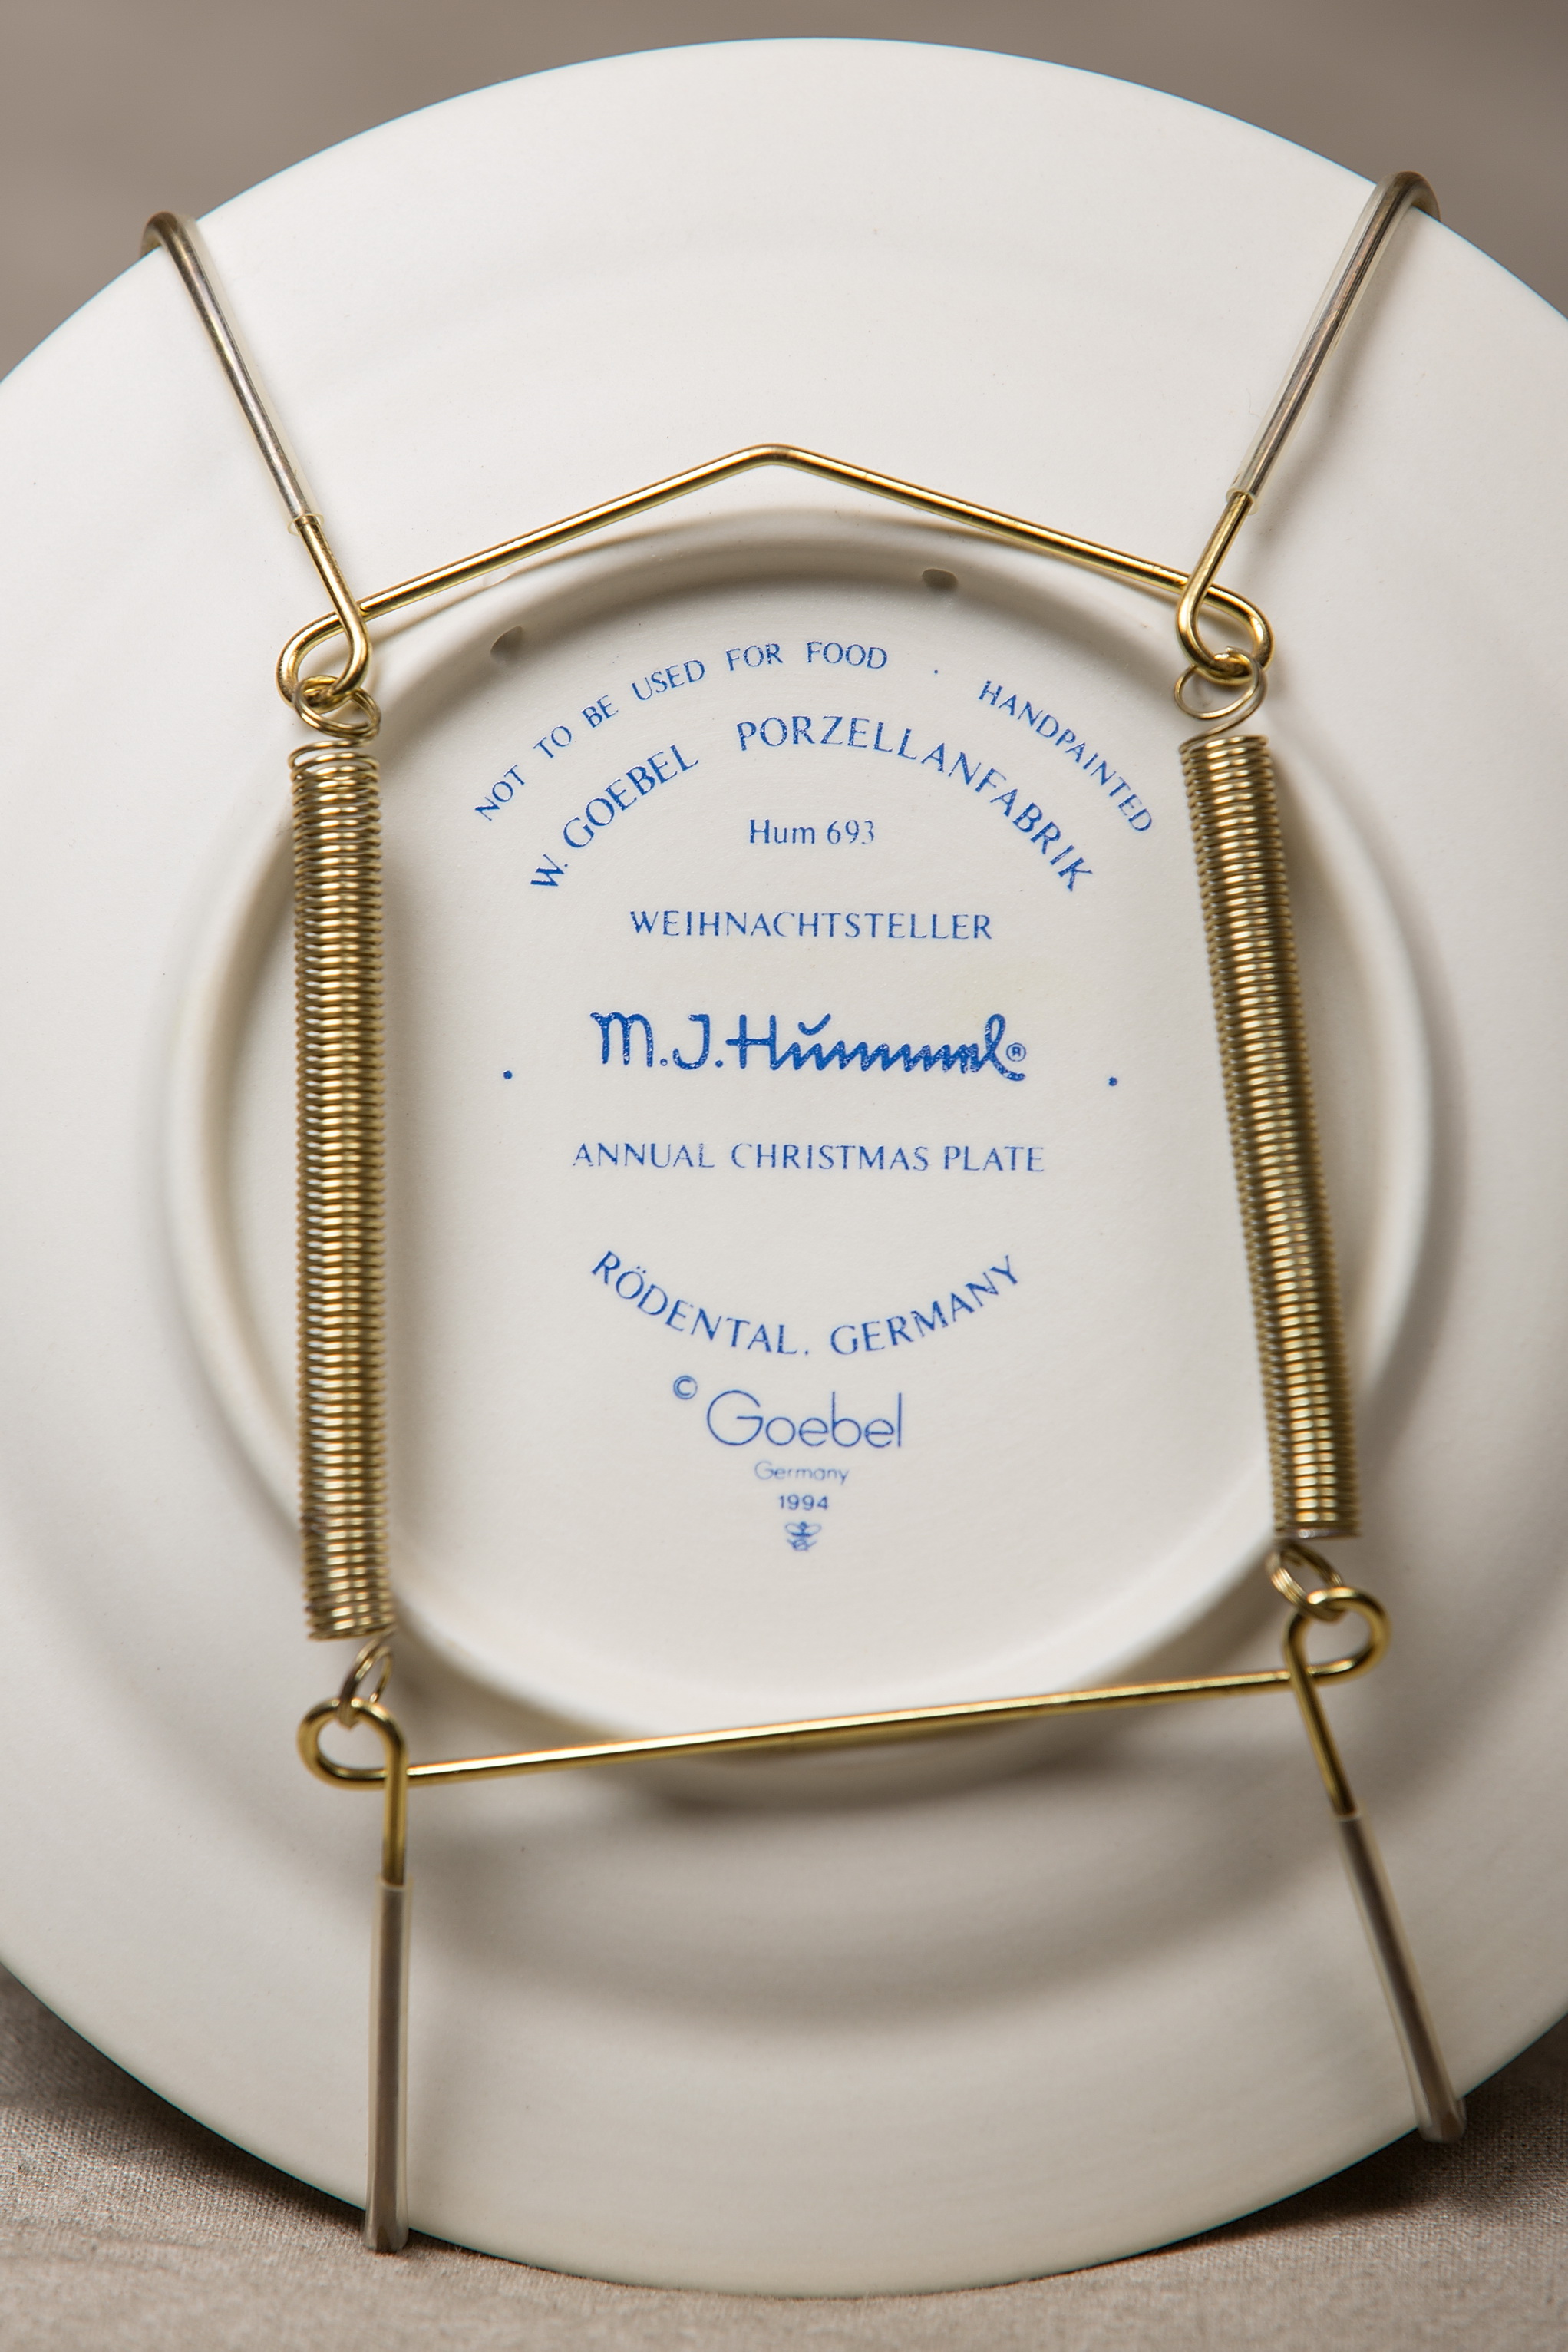 NOT TO BE USED FOR FOOD · HANDPAINTED
W. GOEBEL PORZELLANFABRIK
Hum 693
WEIHNACHTSTELLER
M.J.Hummel®
ANNUAL CHRISTMAS PLATE
RÖDENTAL. GERMANY
© Goebel
Germany
1994